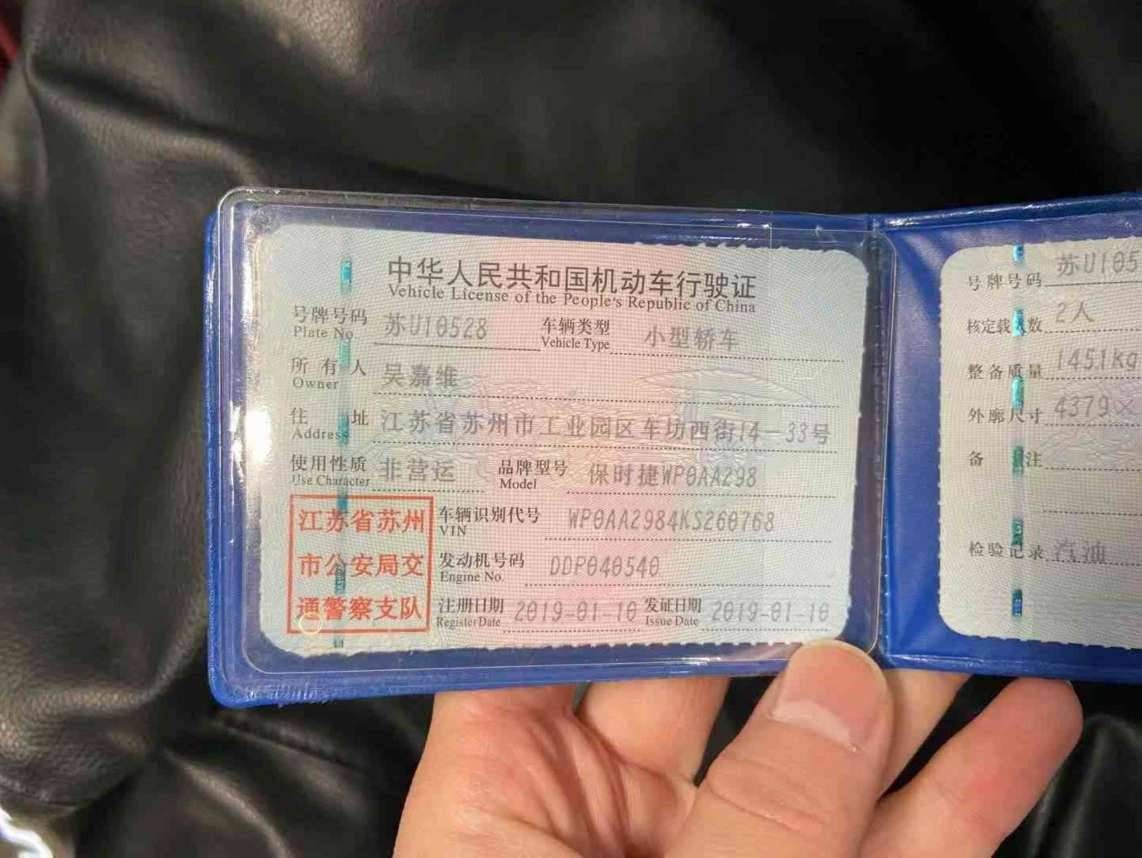 中华人民共和国机动车行驶证
Vehicle License of the People's Republic of China
号牌号码 苏U10528 车辆类型 小型轿车
Plate No. Vehicle Type
所有人 吴嘉维
Owner
住址 江苏省苏州市工业园区车坊西街14-33号
Address
使用性质 非营运 品牌型号 保时捷WP0AA298
Use Character Model
江苏省苏州
市公安局交
通警察支队
车辆识别代号 WP0AA2984KS260768
VIN
发动机号码 DDP040540
Engine No.
注册日期 2019-01-10 发证日期 2019-01-10
Register Date Issue Date
号牌号码 苏U105
核定载人数 2人
整备质量 1451kg
外廓尺寸 4379×
备注
检验记录 汽油